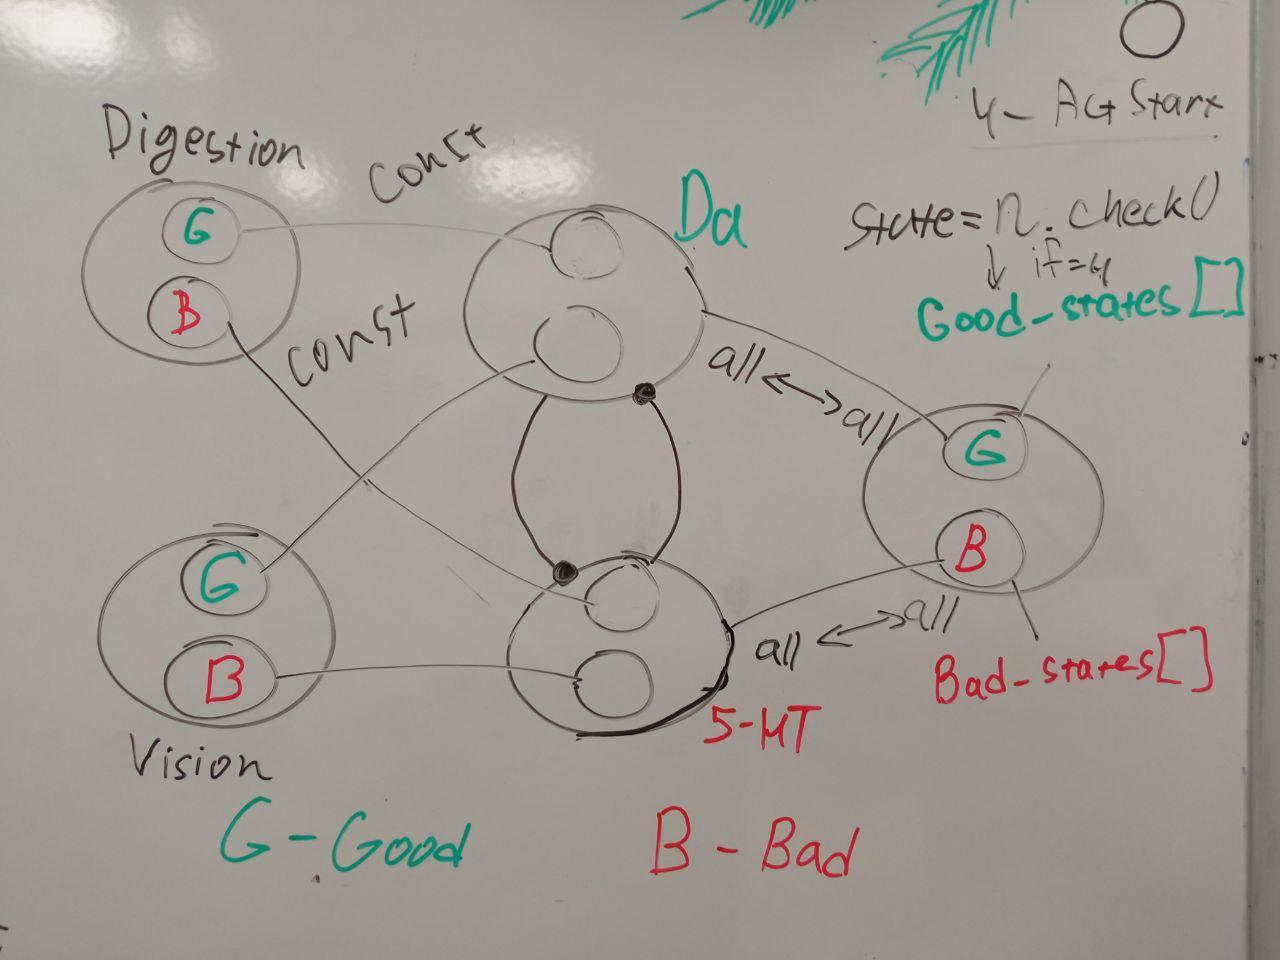 4 - Act Start
Digestion
const
G
Da
state = n.check()
if=4
B
const
Good-states[]
all ↔ all
G
G
B
B
all ↔ all
Bad-states[]
5-HT
Vision
G - Good
B - Bad